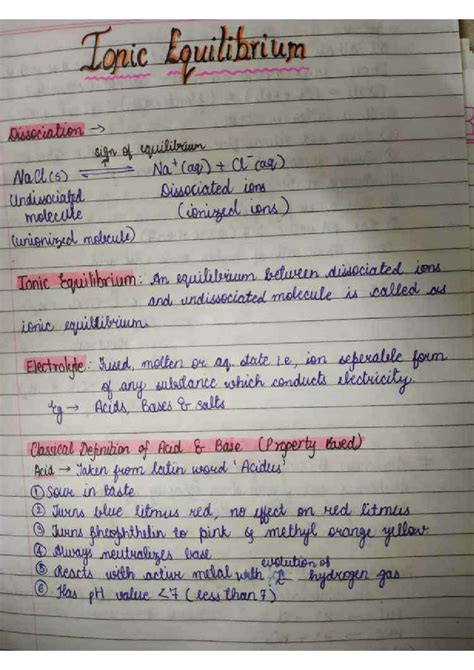 Ionic Equilibrium
Dissociation →
sign of equilibrium
NaCl(s) ⇌ Na⁺(aq) + Cl⁻(aq)
Undissociated Dissociated ions
molecule (ionized ions)
(unionized molecule)
Ionic Equilibrium: An equilibrium between dissociated ions
and undissociated molecule is called as
ionic equilibrium.
Electrolyte: Fused, molten or aq. state i.e, ion seperable form
of any substance which conducts electricity.
Eg → Acids, Bases & salts
Classical Definition of Acid & Base (Property Based)
Acid → Taken from latin word 'Acidus'
① Sour in taste
② Turns blue litmus red, no effect on red litmus
③ Turns pheophthelin to pink & methyl orange yellow.
④ Always neutralizes base
evolution of
⑤ Reacts with active metal with hydrogen gas
⑥ Has pH value <7 (less than 7)